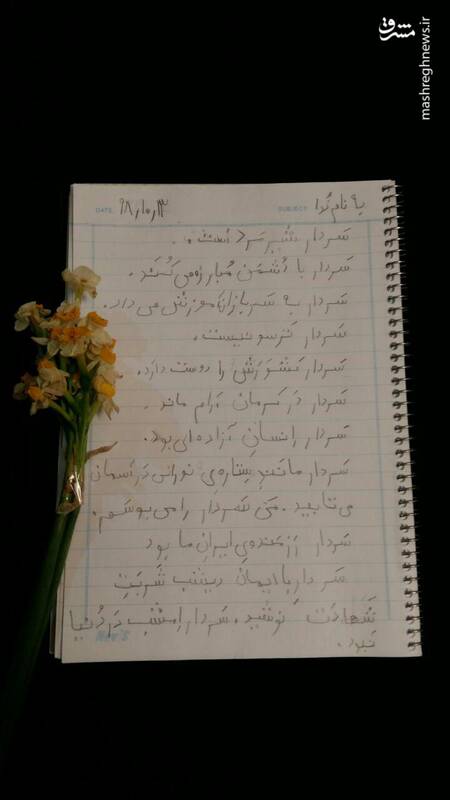 مشرق
mashreghnews.ir
به نام خدا SUBJECT: DATE: ۹۸/۱۰/۱۳
سَردار شیر مَرد اَست.
سَردار با دُشمَن مُبارزه می کُنَد.
سَردار به سَربازان وَرزش می داد.
سَردار تَرسو نیست.
سَردار کِشوَرَش را دوست دارَد.
سَردار دَر کِرمان آرام ماند.
سَردار اِنسانِ آزاده ای بود.
سَردار مانَندِ سِتاره یِ نورانی دَر آسمان
می تابید. مَن سَردار را می بوسَم.
سَردار رَزمَنده یِ ایرانِ ما بود
سَردار با ایمان دیشَب شَربَتِ
شَهادَت نوشید. سَردار اِمشَب دَر دُنیا
نَبود.